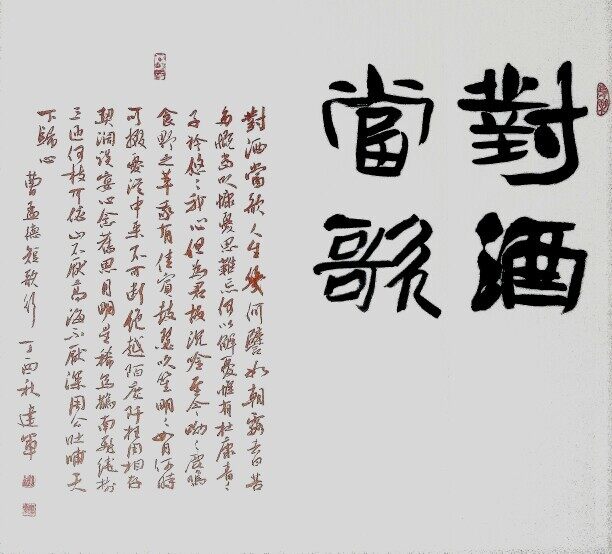 對酒
當歌
對酒當歌人生幾何譬如朝露去日苦
多慨當以慷憂思難忘何以解憂惟有杜康青々
子衿悠々我心但為君故沉吟至今呦々鹿鳴
食野之苹我有佳賓鼓瑟吹笙明々如月何時
可掇憂從中來不可斷絕越陌度阡枉用相存
契闊談宴心念舊恩月明星稀烏鵲南飛繞樹
三匝何枝可依山不厭高海不厭深周公吐哺天
下歸心
曹孟德短歌行 丁酉秋建軍